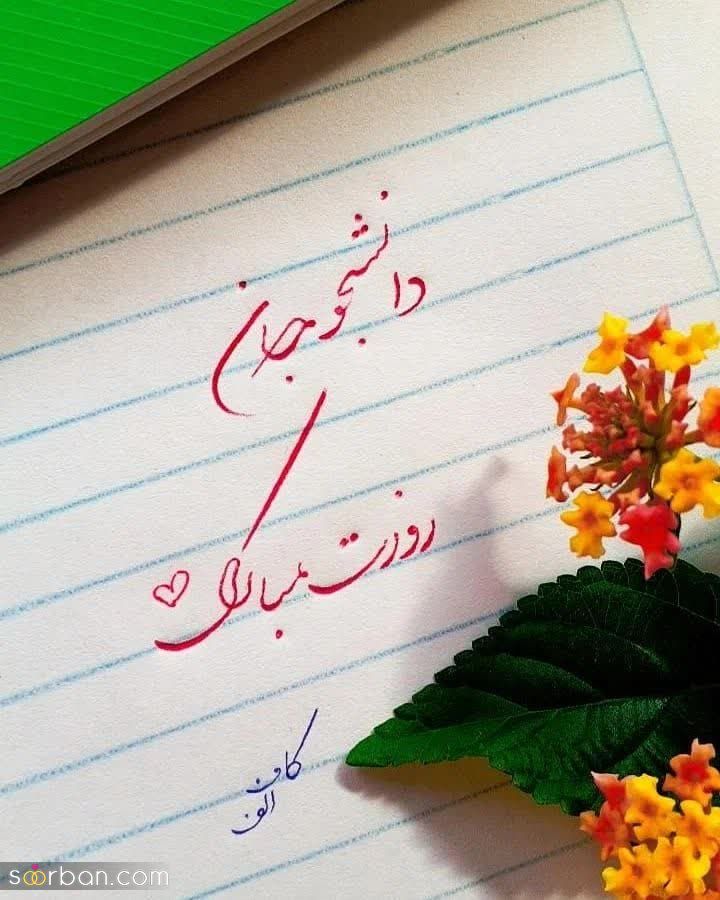 دانشجو جان
روزت مبارک ♡
کاف
الف
soorban.com